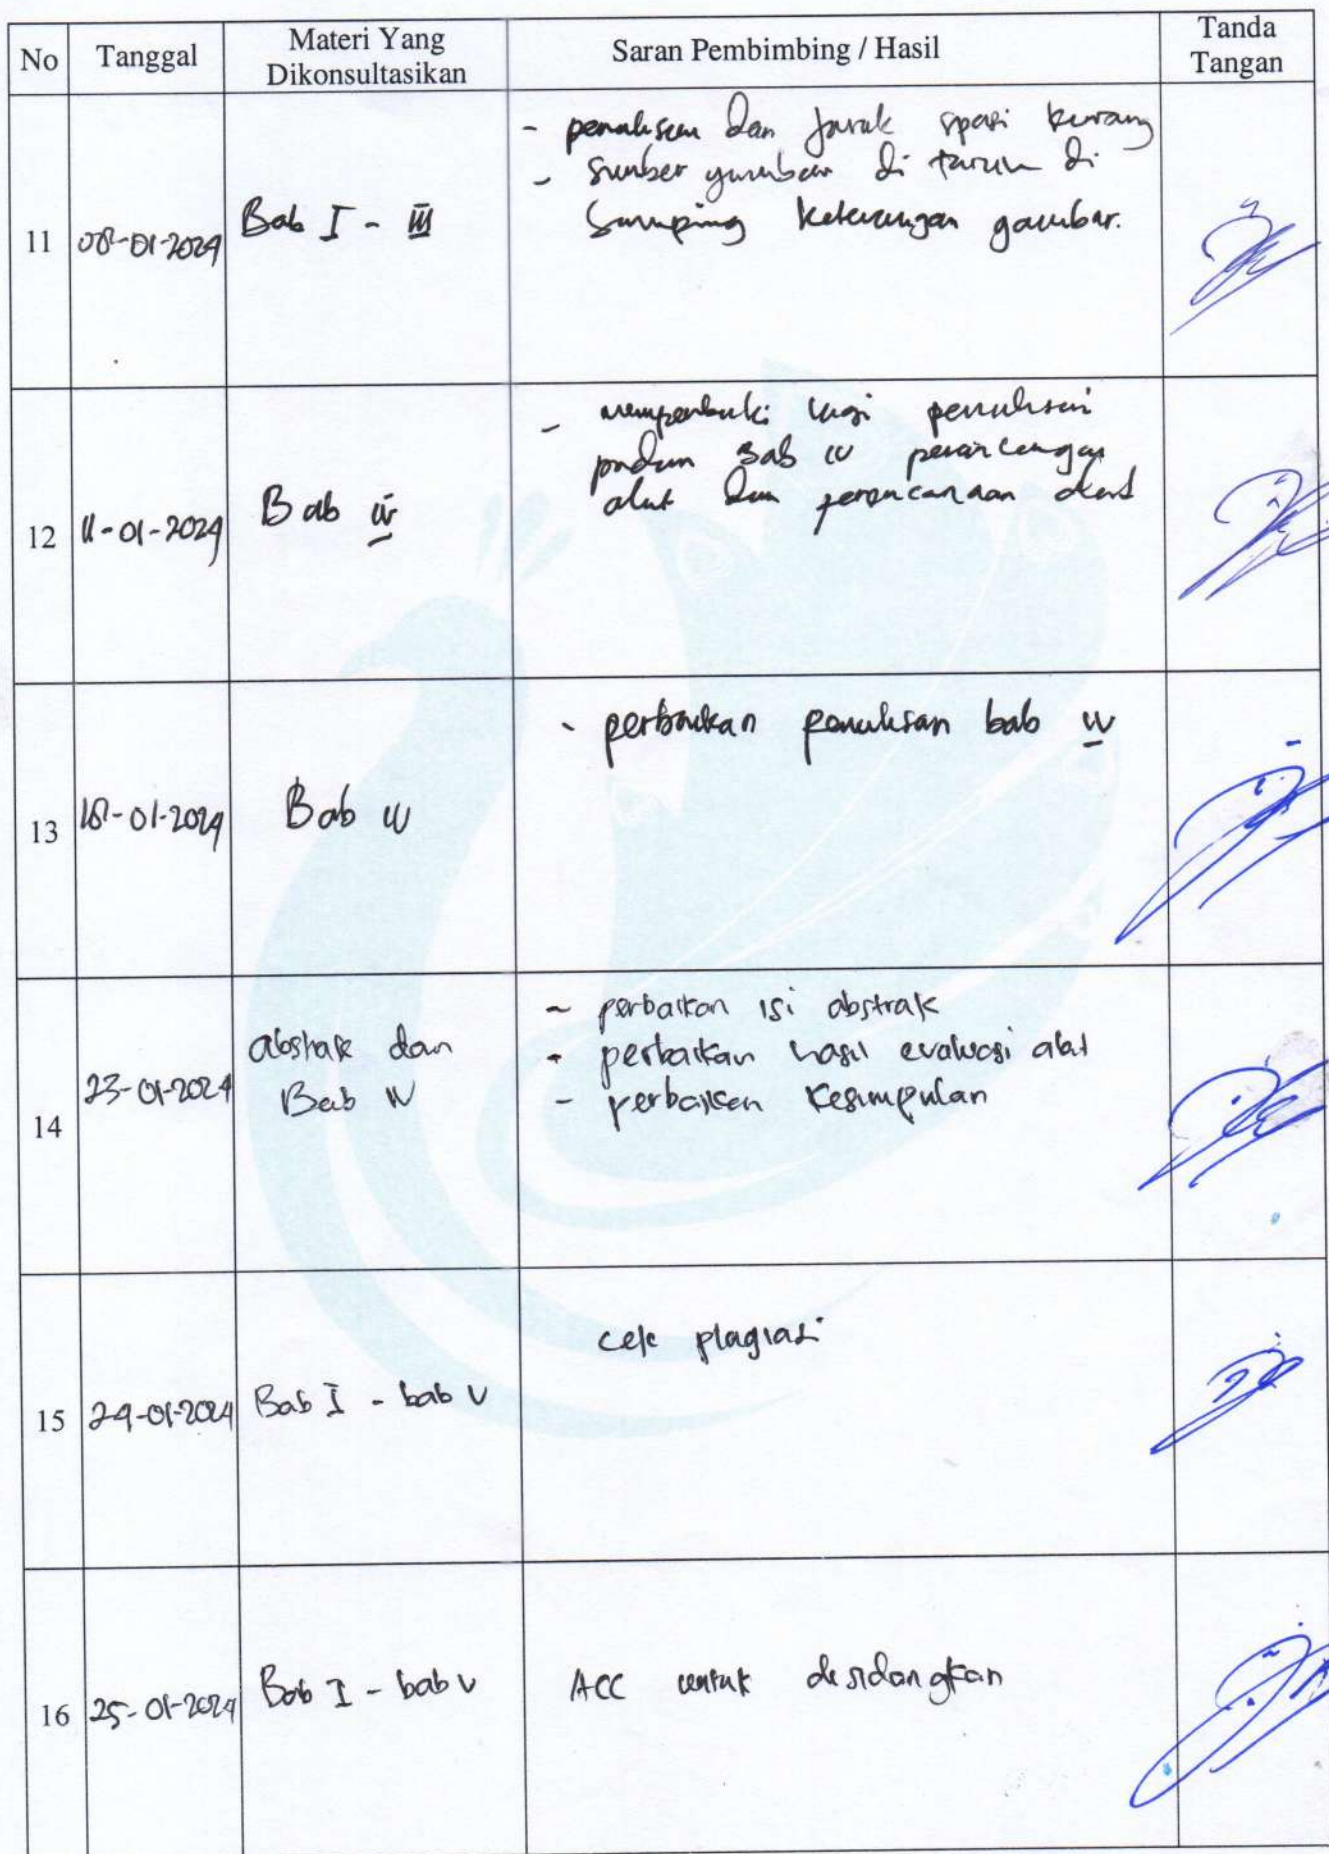 No Tanggal Materi Yang Dikonsultasikan Saran Pembimbing / Hasil Tanda Tangan
11 08-01-2024 Bab I - III
- penulisan dan jarak spasi kurang
- sumber gambar di taruh di
samping keterangan gambar.
12 11-01-2024 Bab IV
- memperbaiki lagi penulisan
pada Bab IV perancangan
alat dan perencanaan alat
13 18-01-2024 Bab IV
- perbaikan penulisan bab IV
14 23-01-2024 abstrak dan
Bab IV
- perbaikan isi abstrak
- perbaikan hasil evaluasi alat
- perbaikan kesimpulan
15 24-01-2024 Bab I - bab V
cek plagiasi
16 25-01-2024 Bab I - bab V
ACC untuk disidangkan